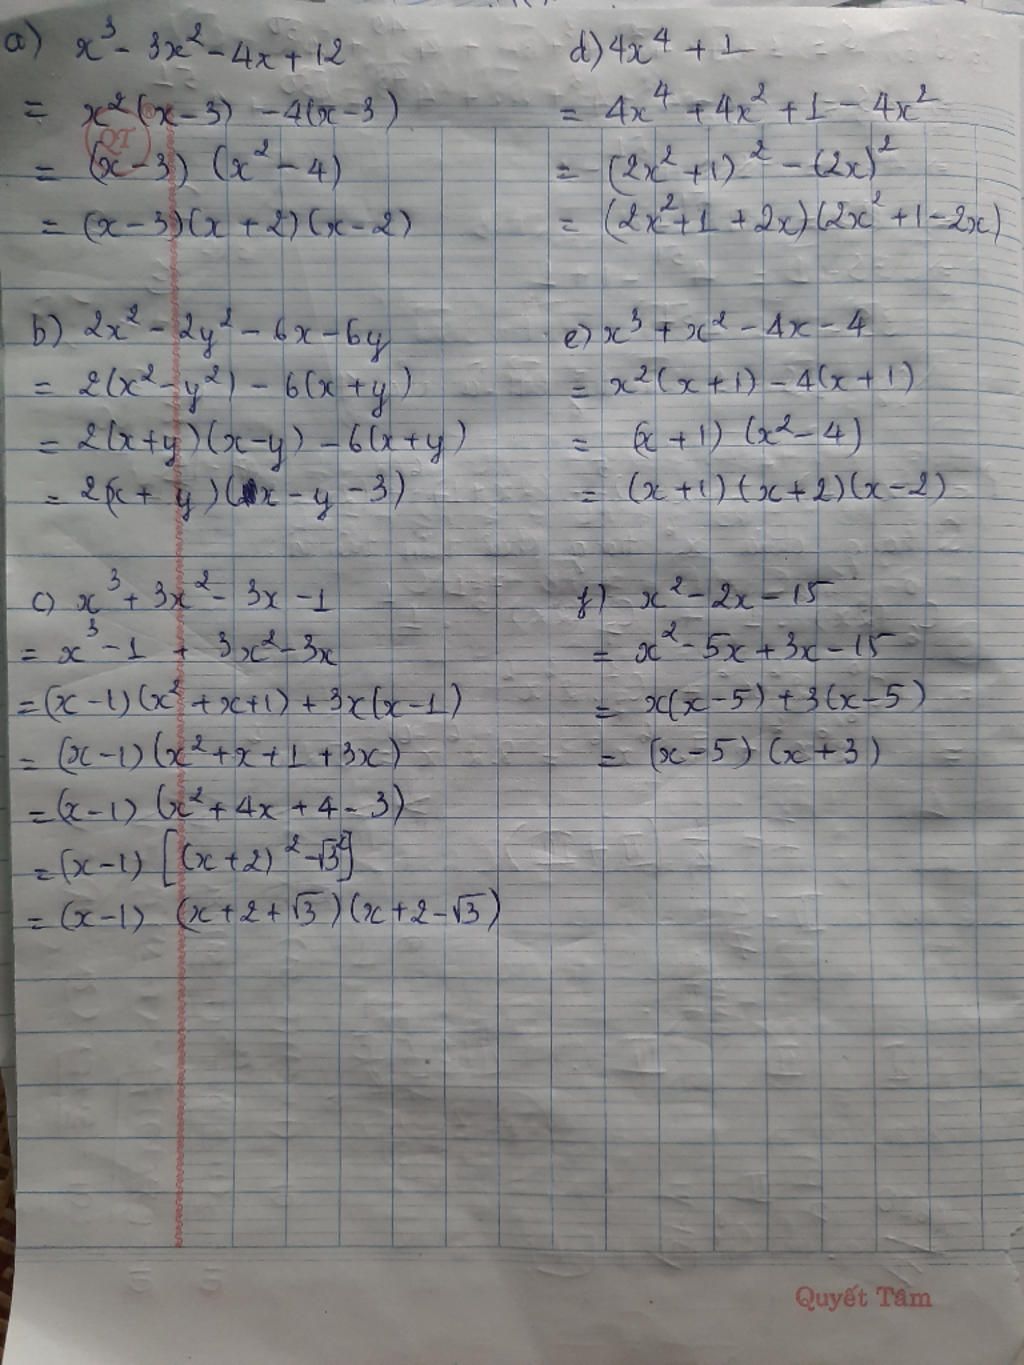 a) x³ - 3x² - 4x + 12
= x²(x - 3) - 4(x - 3)
= (x - 3) (x² - 4)
= (x - 3)(x + 2)(x - 2)
b) 2x² - 2y² - 6x - 6y
= 2(x² - y²) - 6(x + y)
= 2(x+y)(x-y) - 6(x+y)
= 2(x + y)(x - y - 3)
c) x³ + 3x² - 3x - 1
= x³ - 1 + 3x² - 3x
= (x - 1)(x² + x + 1) + 3x(x - 1)
= (x - 1)(x² + x + 1 + 3x)
= (x - 1) (x² + 4x + 4 - 3)
= (x - 1) [(x + 2)² - √3²]
= (x - 1) (x + 2 + √3)(x + 2 - √3)
d) 4x⁴ + 1
= 4x⁴ + 4x² + 1 - 4x²
= (2x² + 1)² - (2x)²
= (2x² + 1 + 2x)(2x² + 1 - 2x)
e) x³ + x² - 4x - 4
= x²(x + 1) - 4(x + 1)
= (x + 1) (x² - 4)
= (x + 1)(x + 2)(x - 2)
f) x² - 2x - 15
= x² - 5x + 3x - 15
= x(x - 5) + 3(x - 5)
= (x - 5) (x + 3)
QT
Quyết Tâm